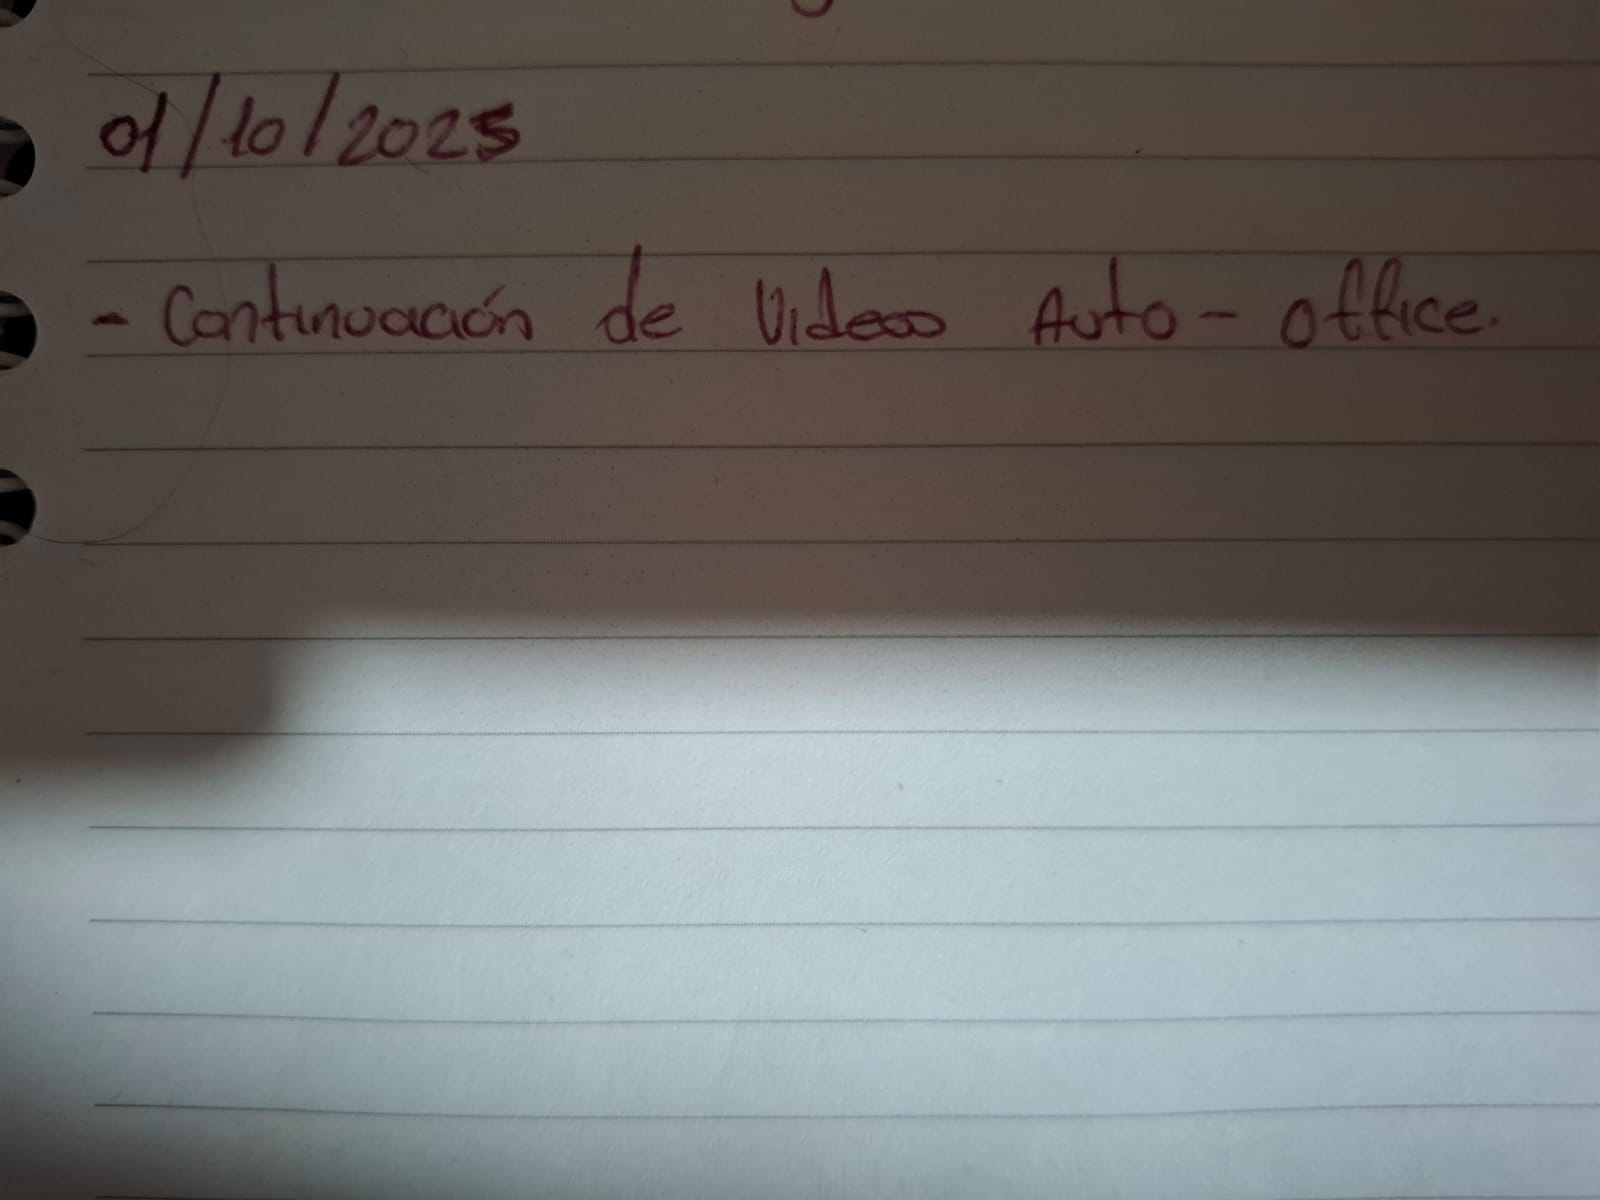 01/10/2025
- Continuación de Videos Auto - office.